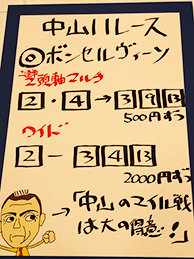 中山11レース
◎ボンセルヴィーソ
2・4→3 9 13
500円ずつ
ワイド
2－3 4 13
2000円ずつ
→「中山のマイル戦
は大の得意!」